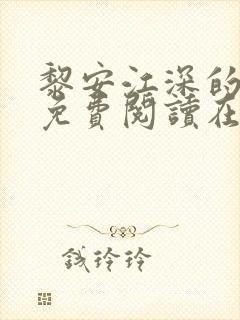 黎安江深的
免費閱讀在
錢玲玲